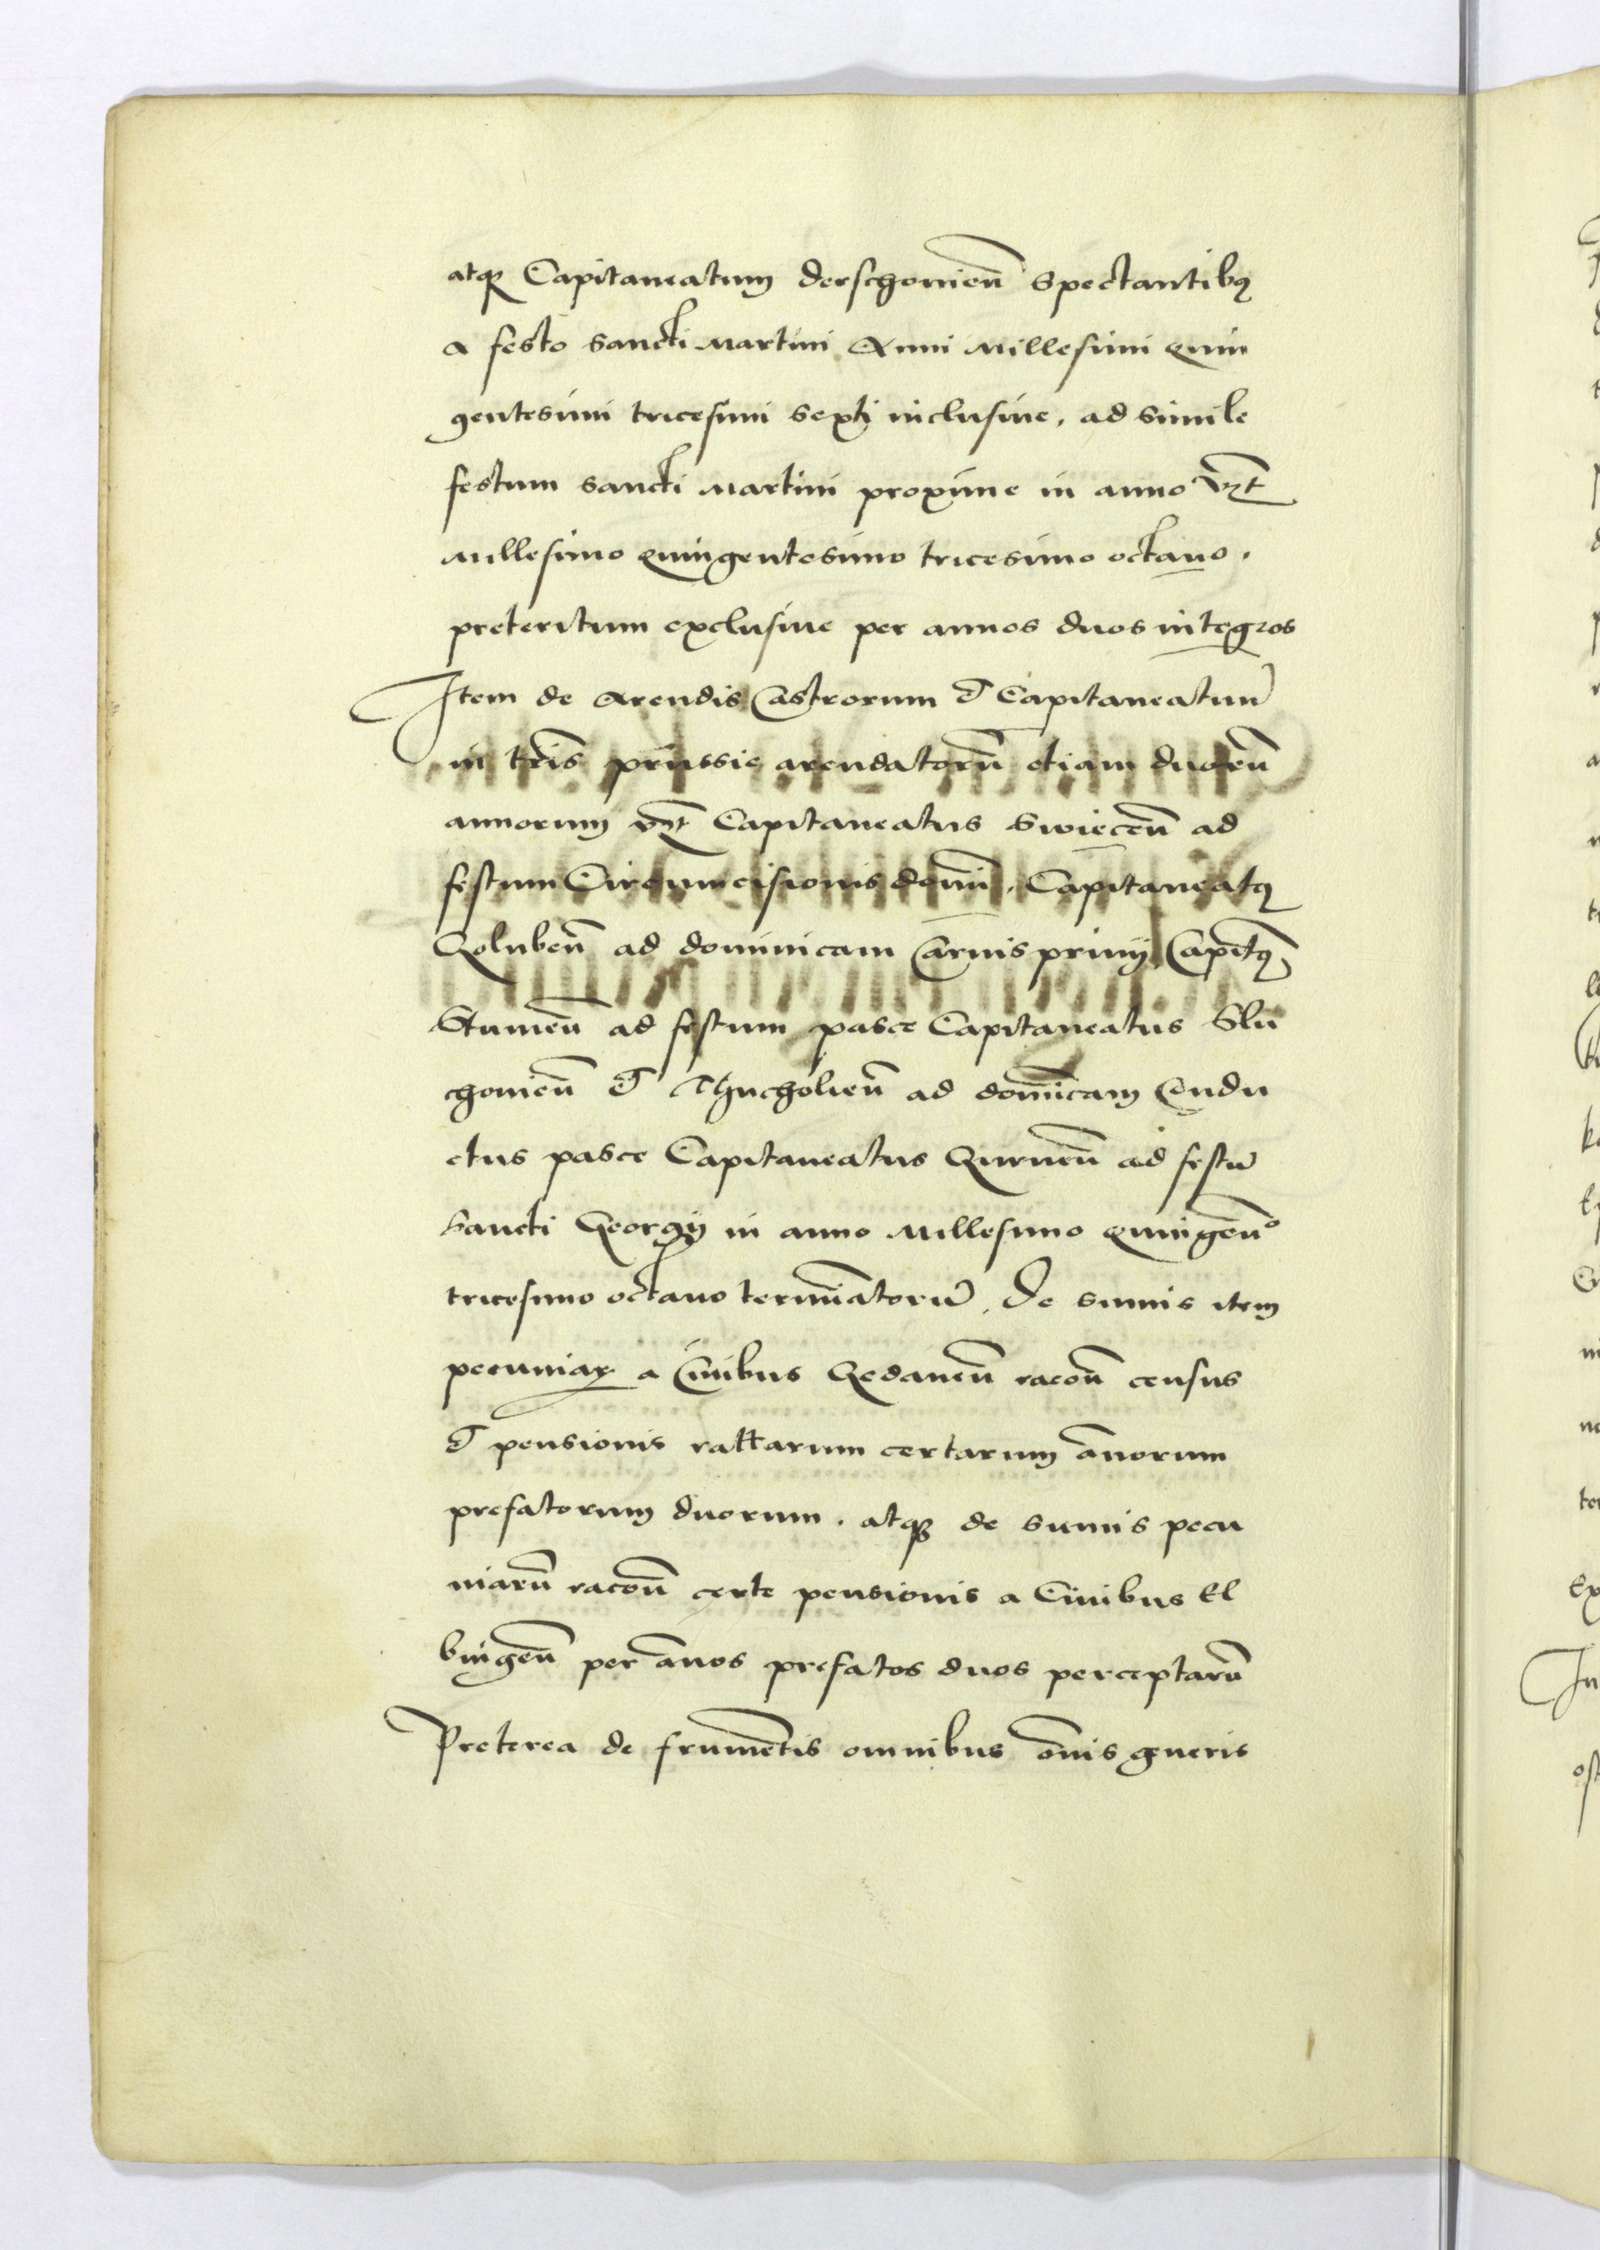 atq3 Capitaneatum derschouieñ spectantib9
a festo sancti Martini Anni Millesimi quin
gentesimi tricesimi sexti inclusiue, ad simile
festum sancti Martini proxime in anno vƷt
Millesimo quingentesimo tricesimo octauo,
preteritum exclusiue per annos duos integros
Item de Arendis Castrorum et Capitaneatuũ
in tris̃ prussie arendatorũ etiam duorũ
annorum vƷt Capitaneatus Swieceñ ad
festum Circumcisionis domĩ, Capitaneat9
Golubeñ ad dominicam Carnispriuij Capit9
Stumeñ ad festum pasce Capitaneatus Slu
chouieñ et Thucholieñ ad domĩcam Condu
ctus pasce Capitaneatus Gnrneñ ad festũ
sancti Georgij in anno Millesimo quingeño
tricesimo octauo termĩatorũ. De sumis item
pecuniaꝝ a Ciuibus Gedaneñ racoñ census
et pensionis rattarum certarum ãnorum
prefatorum duorum. atq3 de sumis pecu
niarũ racoñ certe pensionis a Ciuibus El
bingeñ per ãnos prefatos duos perceptarũ
Preterea de frumẽtis omnibus õnis gneris